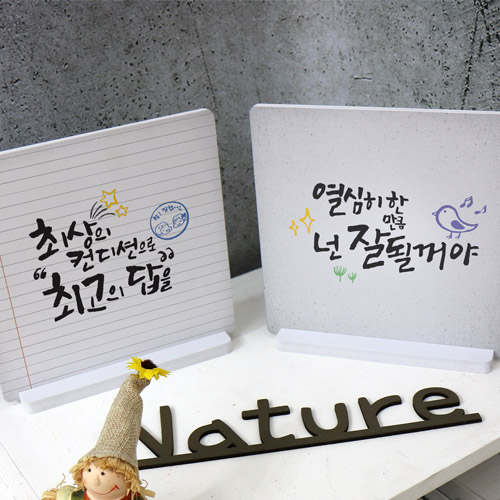 최상의
컨디션으로
"최고의 답을"
열심히 한
만큼
넌 잘될꺼야
Nature